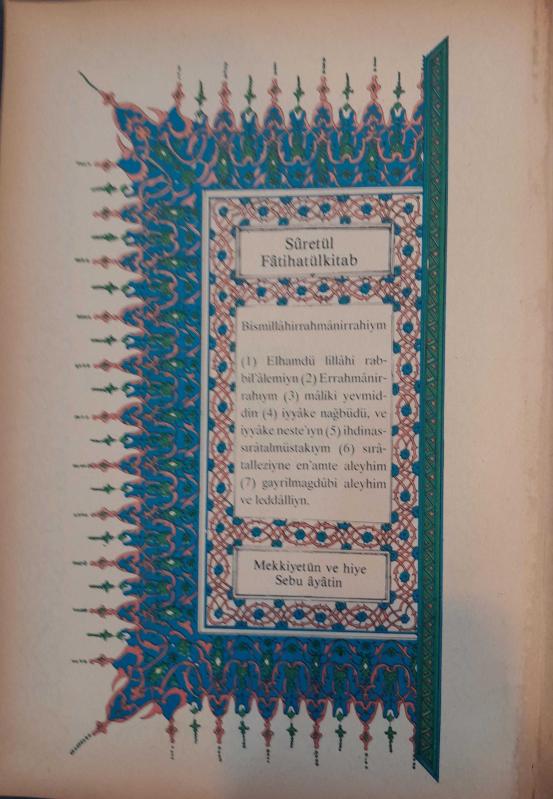 Sûretül
Fâtihatülkitab
Bismillâhirrahmânirrahiym
(1) Elhamdü lillâhi rab-
bil'âlemiyn (2) Errahmânir-
rahıym (3) mâliki yevmid-
din (4) iyyâke nağbüdü, ve
iyyâke neste'ıyn (5) ihdinas-
sırâtalmüstakıym (6) sırâ-
talleziyne en'amte aleyhim
(7) gayrilmagdûbi aleyhim
ve leddâlliyn.
Mekkiyetün ve hiye
Sebu âyâtin